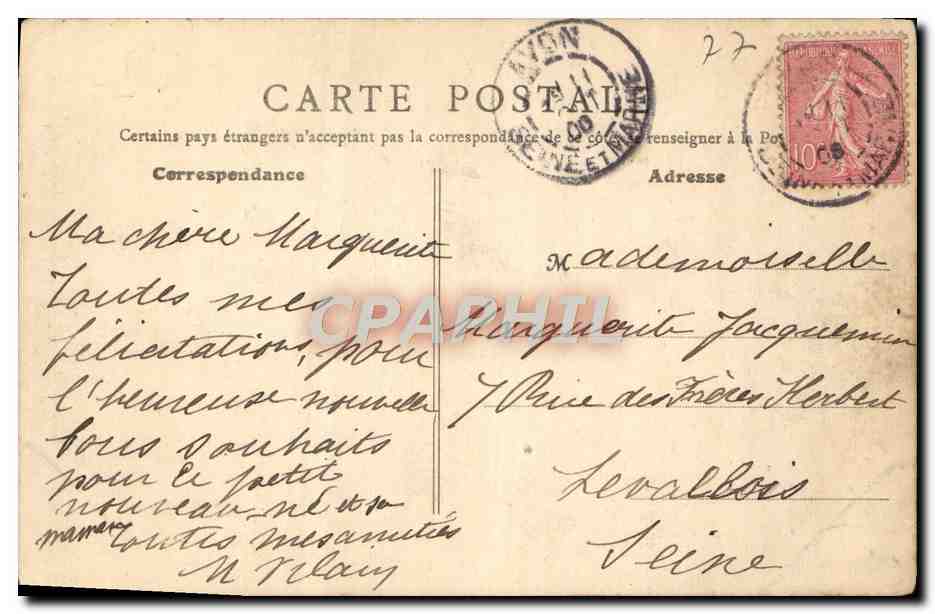 77
RÉPUBLIQUE FRANÇAISE
10
AVON
11
09
SEINE ET MARNE
CARTE POSTALE
Certains pays étrangers n'acceptant pas la correspondance de ce côté, se renseigner à la Po
Correspondance
Ma chère Marguerite
Toutes mes
félicitations, pour
l'heureuse nouvelle
bons souhaits
pour ce petit
nouveau-né et sa
maman
toutes mes amitiés
M Vilain
Adresse
Mademoiselle
Marguerite Jacquemin
7 Rue des Frères Herbert
Levallois
Seine
CPAPHIL